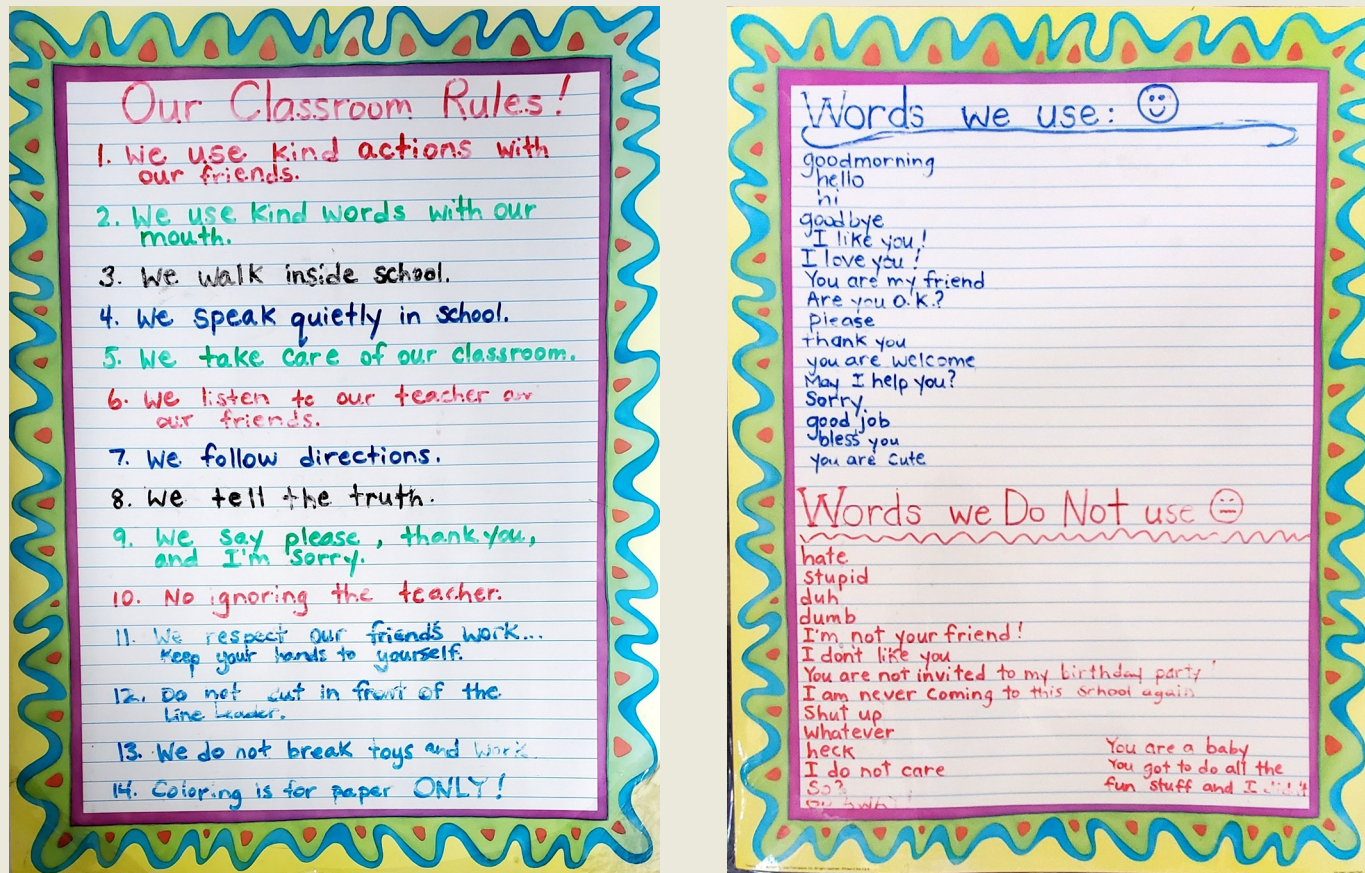 Our Classroom Rules!
1. We use kind actions with
our friends.
2. We use kind words with our
mouth.
3. We walk inside school.
4. We speak quietly in school.
5. We take care of our classroom.
6. We listen to our teacher
our friends.
7. We follow directions.
8. We tell the truth.
9. We say please, thank you,
and I'm sorry.
10. No ignoring the teacher.
11. We respect our friends work...
Keep your hands to yourself.
12. Do not cut in front of the
Line Leader.
13. We do not break toys and work
14. Coloring is for paper ONLY!
Words we use:
goodmorning
hello
hi
goodbye
I like you!
I love you!
You are my friend
Are you O.K.?
please
thank you
you are welcome
May I help you?
Sorry
good job
bless you
you are cute
Words we Do Not use
hate
stupid
duh
dumb
I'm not your friend!
I dont like you
You are not invited to my birthday party!
I am never coming to this school again
Shut up
whatever
heck
I do not care
So?
You are a baby
You got to do all the
fun stuff and I didn't